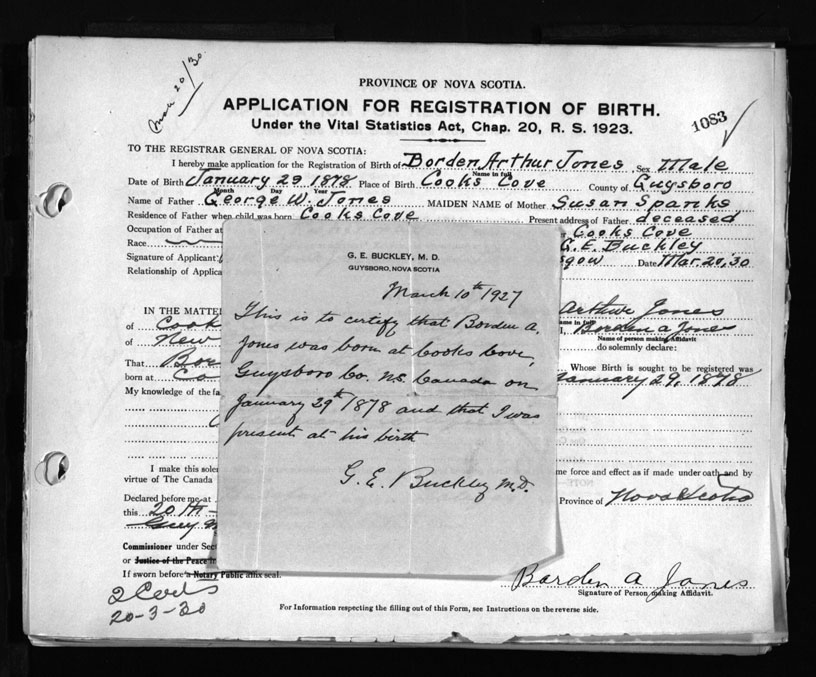 Mar 20/30
PROVINCE OF NOVA SCOTIA.
APPLICATION FOR REGISTRATION OF BIRTH.
1083
Under the Vital Statistics Act, Chap. 20, R. S. 1923.
TO THE REGISTRAR GENERAL OF NOVA SCOTIA:
I hereby make application for the Registration of Birth of Borden Arthur Jones Sex Male
Name in full
Date of Birth January 29 1878 Place of Birth Cooks Cove County of Guysboro
Month Day Year
Name of Father George W. Jones MAIDEN NAME of Mother Susan Spanks
Residence of Father when child was born Cooks Cove Present address of Father deceased
Occupation of Father at Cooks Cove
Race G. E. Buckley
Signature of Applicant sgow Date Mar. 20, 30
Relationship of Applica
G. E. BUCKLEY, M. D.
GUYSBORO, NOVA SCOTIA
March 10th 1927
This is to certify that Borden A.
Jones was born at Cooks Cove,
Guysboro Co. N.S. Canada on
January 29th 1878 and that I was
present at his birth
G. E. Buckley M.D.
IN THE MATTE Arthur Jones
of Cook ame in full I, Borden A Jones
of New Name of person making Affidavit
do solemnly declare:
That Bor Whose Birth is sought to be registered was
born at Co January 29, 1878
My knowledge of the fa
I make this sole me force and effect as if made under oath and by
virtue of The Canada
Declared before me at Province of Nova Scotia
this 20th
Commissioner under Sec
or Justice of the Peace
If sworn before a Notary Public affix seal.
Borden A Jones
Signature of Person making Affidavit.
20-3-30
For Information respecting the filling out of this Form, see Instructions on the reverse side.